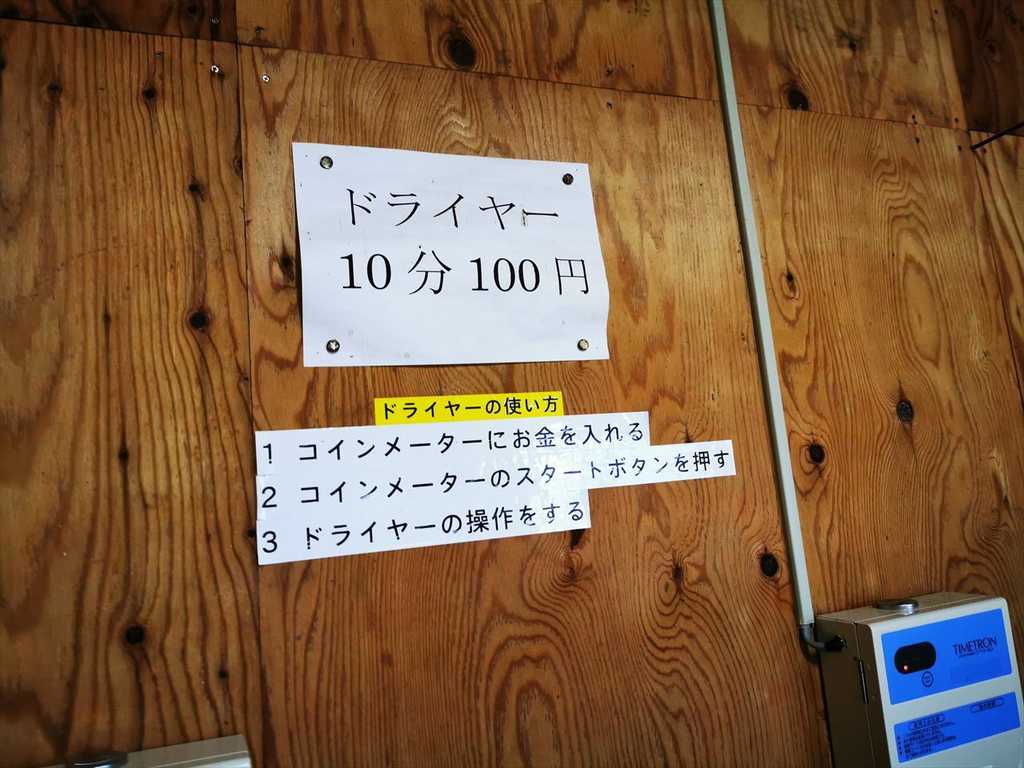 ドライヤー
10分100円
ドライヤーの使い方
1 コインメーターにお金を入れる
2 コインメーターのスタートボタンを押す
3 ドライヤーの操作をする
TIMETRON